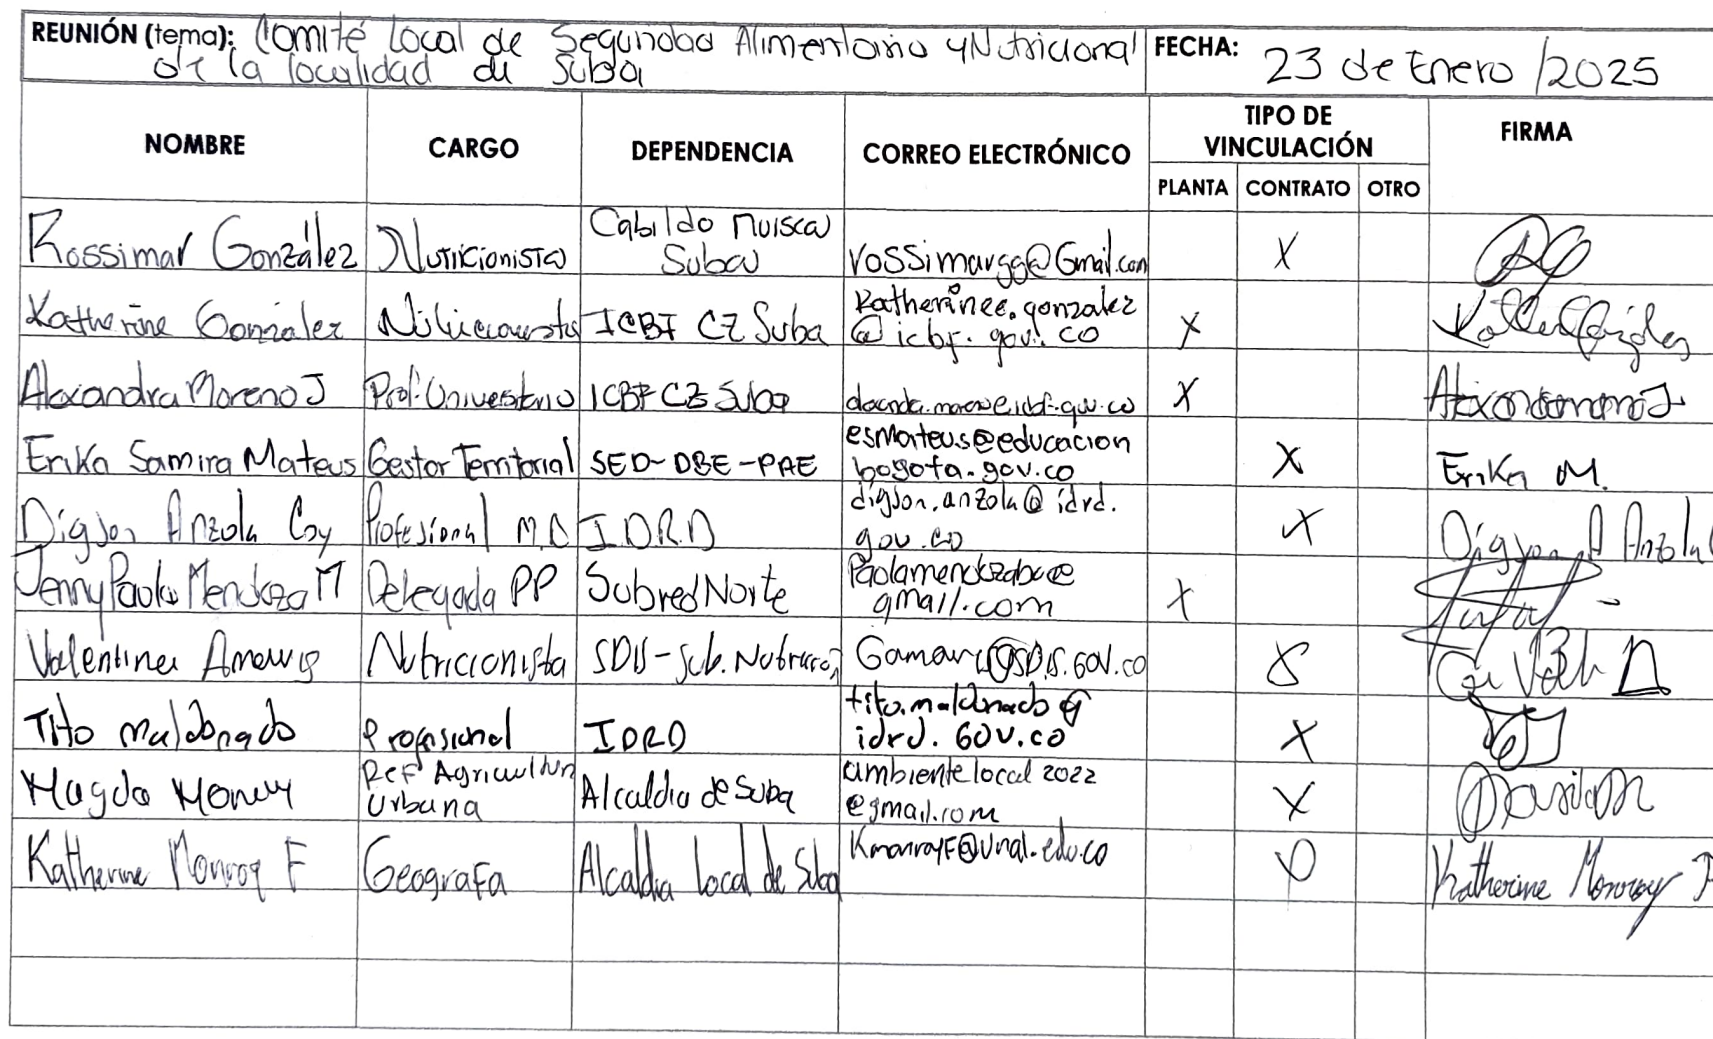 REUNIÓN (tema): Comité Local de Seguridad Alimentaria y Nutricional
de la localidad de Suba
FECHA: 23 de Enero /2025
NOMBRE CARGO DEPENDENCIA CORREO ELECTRÓNICO TIPO DE VINCULACIÓN FIRMA
PLANTA CONTRATO OTRO
Rossimar González Nutricionista Cabildo Muisca
Suba rossimargg@Gmail.com X
Katherine González Nutricionista ICBF CZ Suba Katherinee.gonzalez
@icbf.gov.co X
Alexandra Moreno J Prof. Universitario ICBF CZ Suba X
Erika Samira Mateus Gestor Territorial SED-DBE-PAE esmateus@educacion
bogota.gov.co X Erika M.
Digson Anzola Coy Profesional M.D I.D.R.D digson.anzola@idrd.
gov.co X
Jenny Paola Mendoza M Delegada PP Subred Norte
gmail.com X
Valentina Nutricionista SDIS-Sub. Nutrición X
Tito Maldonado Profesional IDRD tito.maldonado@
idrd.GOV.CO X
Magda Ref Agricultura
Urbana Alcaldia de Suba ambientelocal2022
@gmail.com X
Katherine Monroy F Geografa Alcaldia Local de Suba KmonroyF@unal.edu.co X Katherine Monroy F